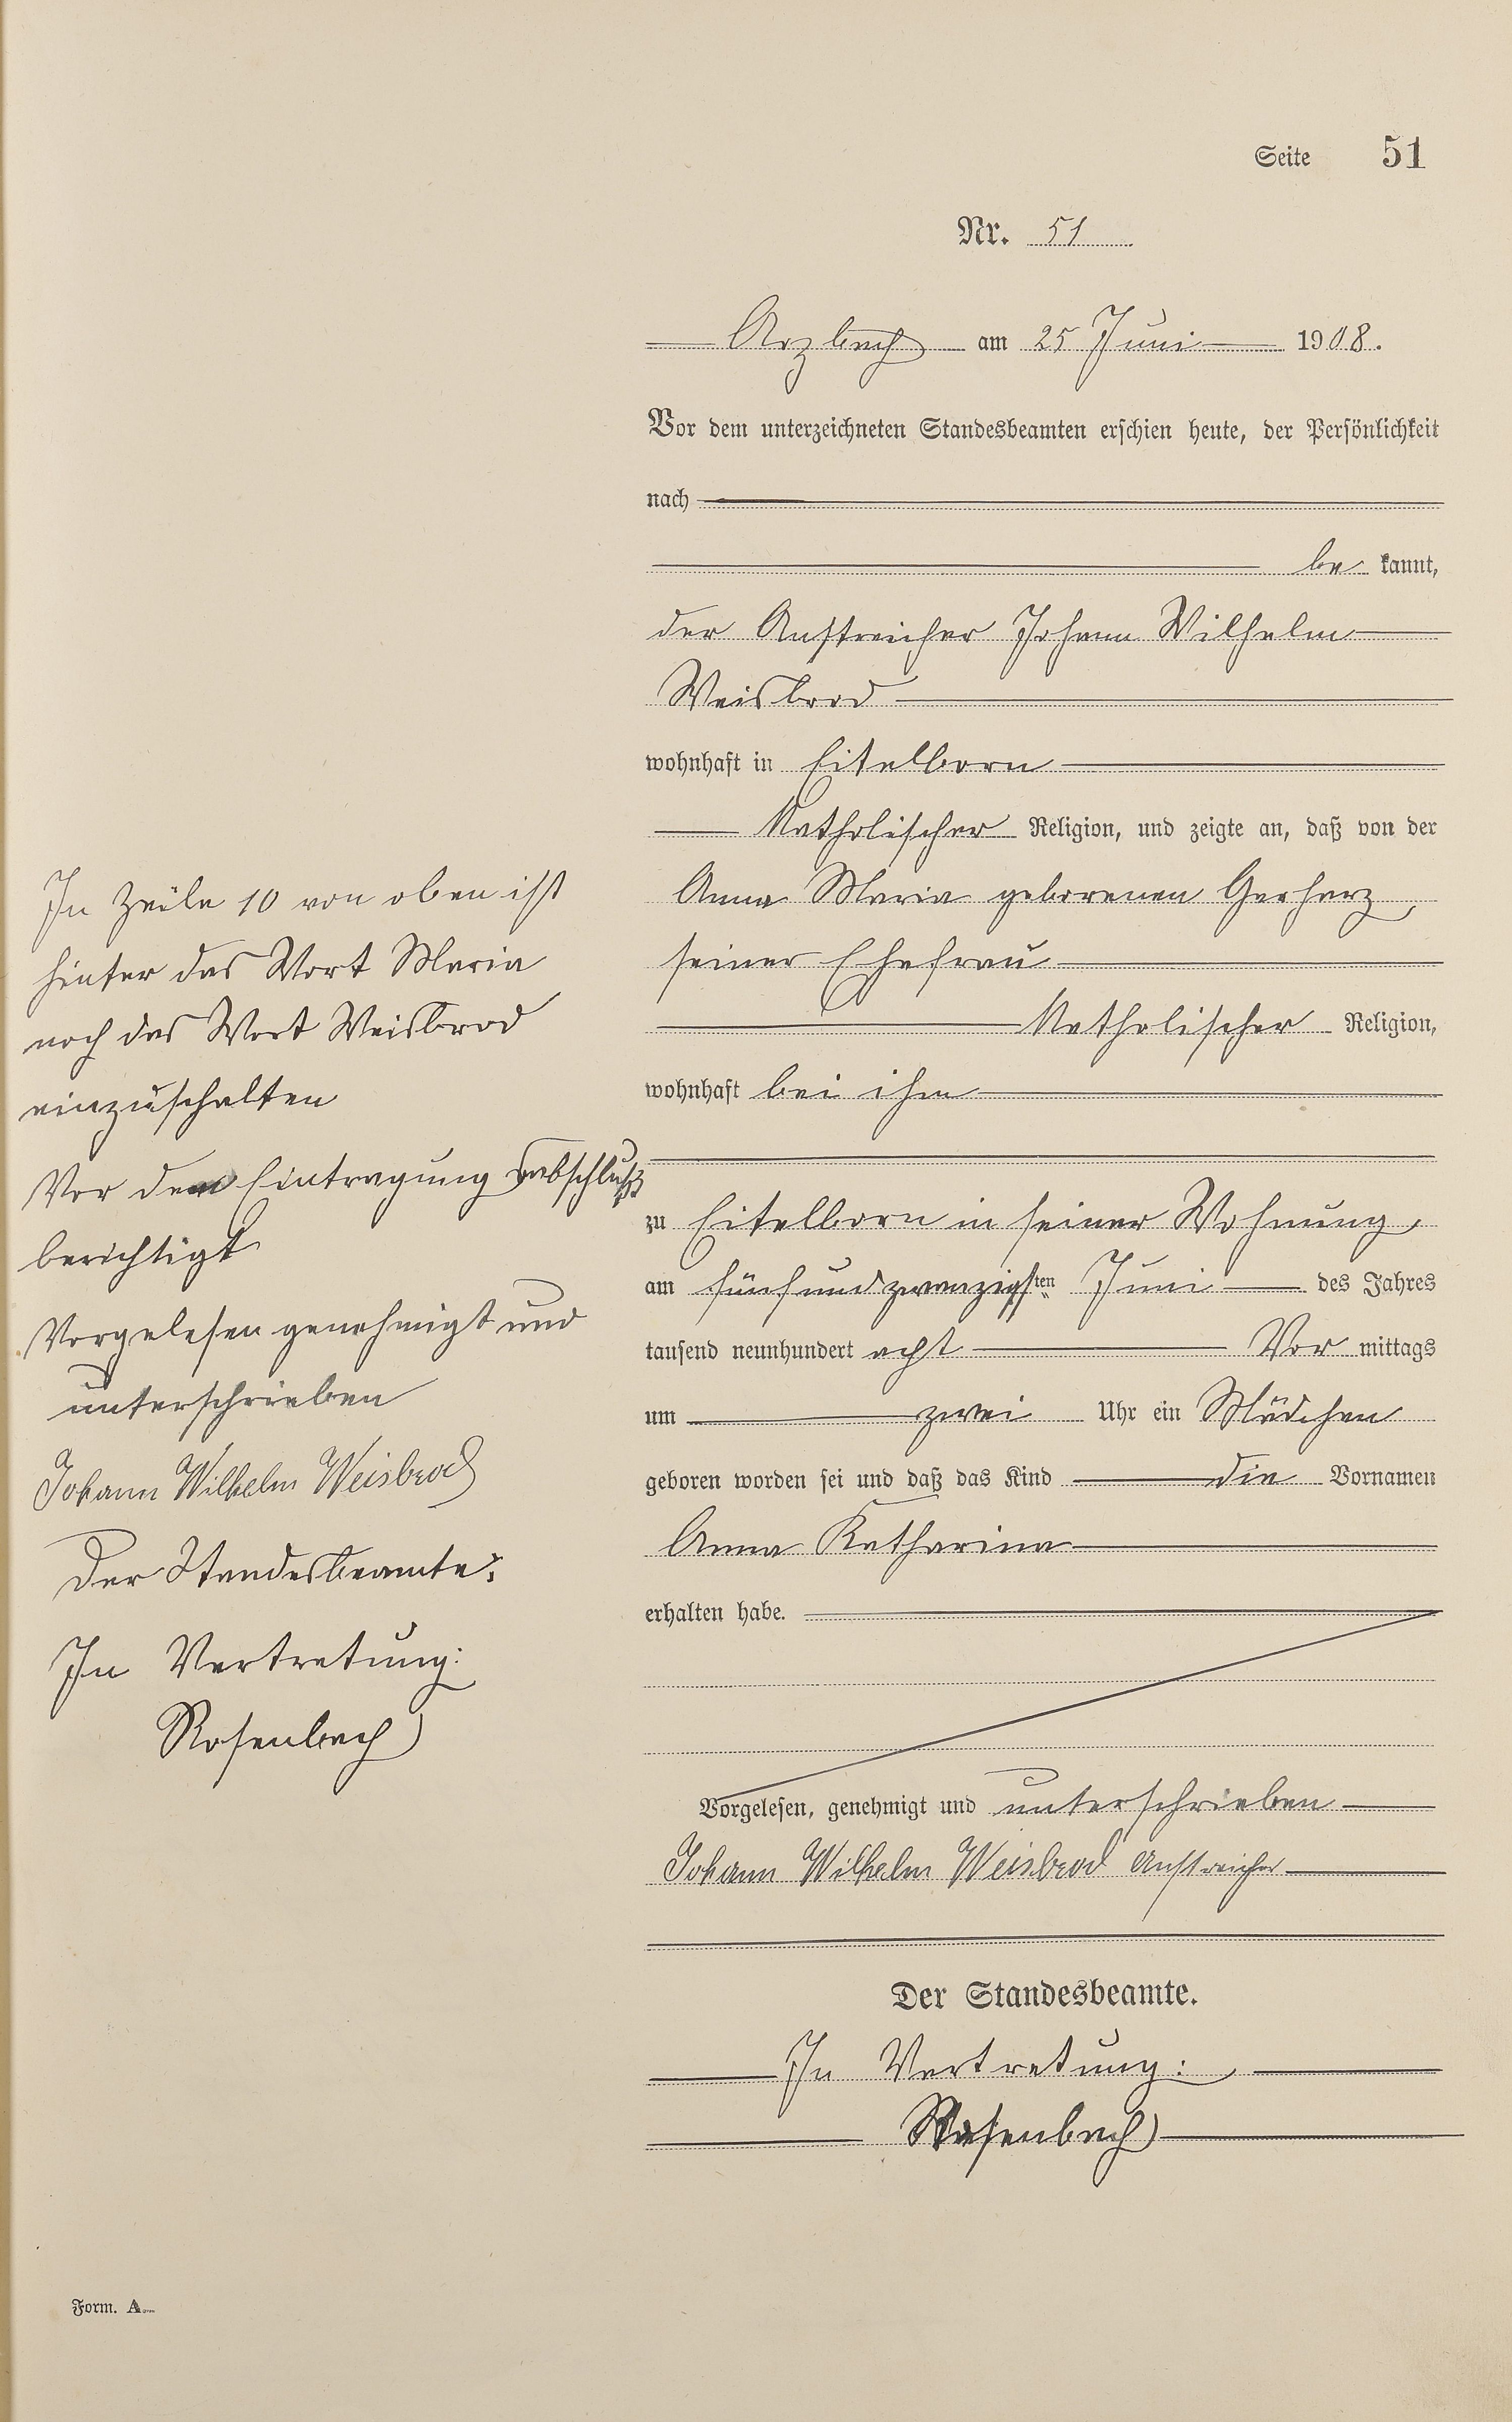 Seite 51
Nr. 51
Arzbach am 25 Juni 1908.
Vor dem unterzeichneten Standesbeamten erschien heute, der Persönlichkeit
nach
be kannt,
der Anstreicher Johann Wilhelm
Weisbrod
wohnhaft in Eitelborn
Katholischer Religion, und zeigte an, daß von der
Anna Maria geborenen Gerharz,
seiner Ehefrau
Katholischer Religion,
wohnhaft bei ihm
zu Eitelborn in seiner Wohnung,
am fünfundzwanzigsten Juni des Jahres
tausend neunhundert acht Vor mittags
um zwei Uhr ein Mädchen
geboren worden sei und daß das Kind die Vornamen
Anna Katharina
erhalten habe.
Vorgelesen, genehmigt und unterschrieben
Johann Wilhelm Weisbrod Anstreicher
Der Standesbeamte.
In Vertretung:
Rosenbach
In Zeile 10 von oben ist
hinter das Wort Maria
noch das Wort Weisbrod
einzuschalten
Vor dem Eintragungsabschluß
berichtigt
Vorgelesen genehmigt und
unterschrieben
Johann Wilhelm Weisbrod
Der Standesbeamte:
In Vertretung:
Rosenbach
Form. A.